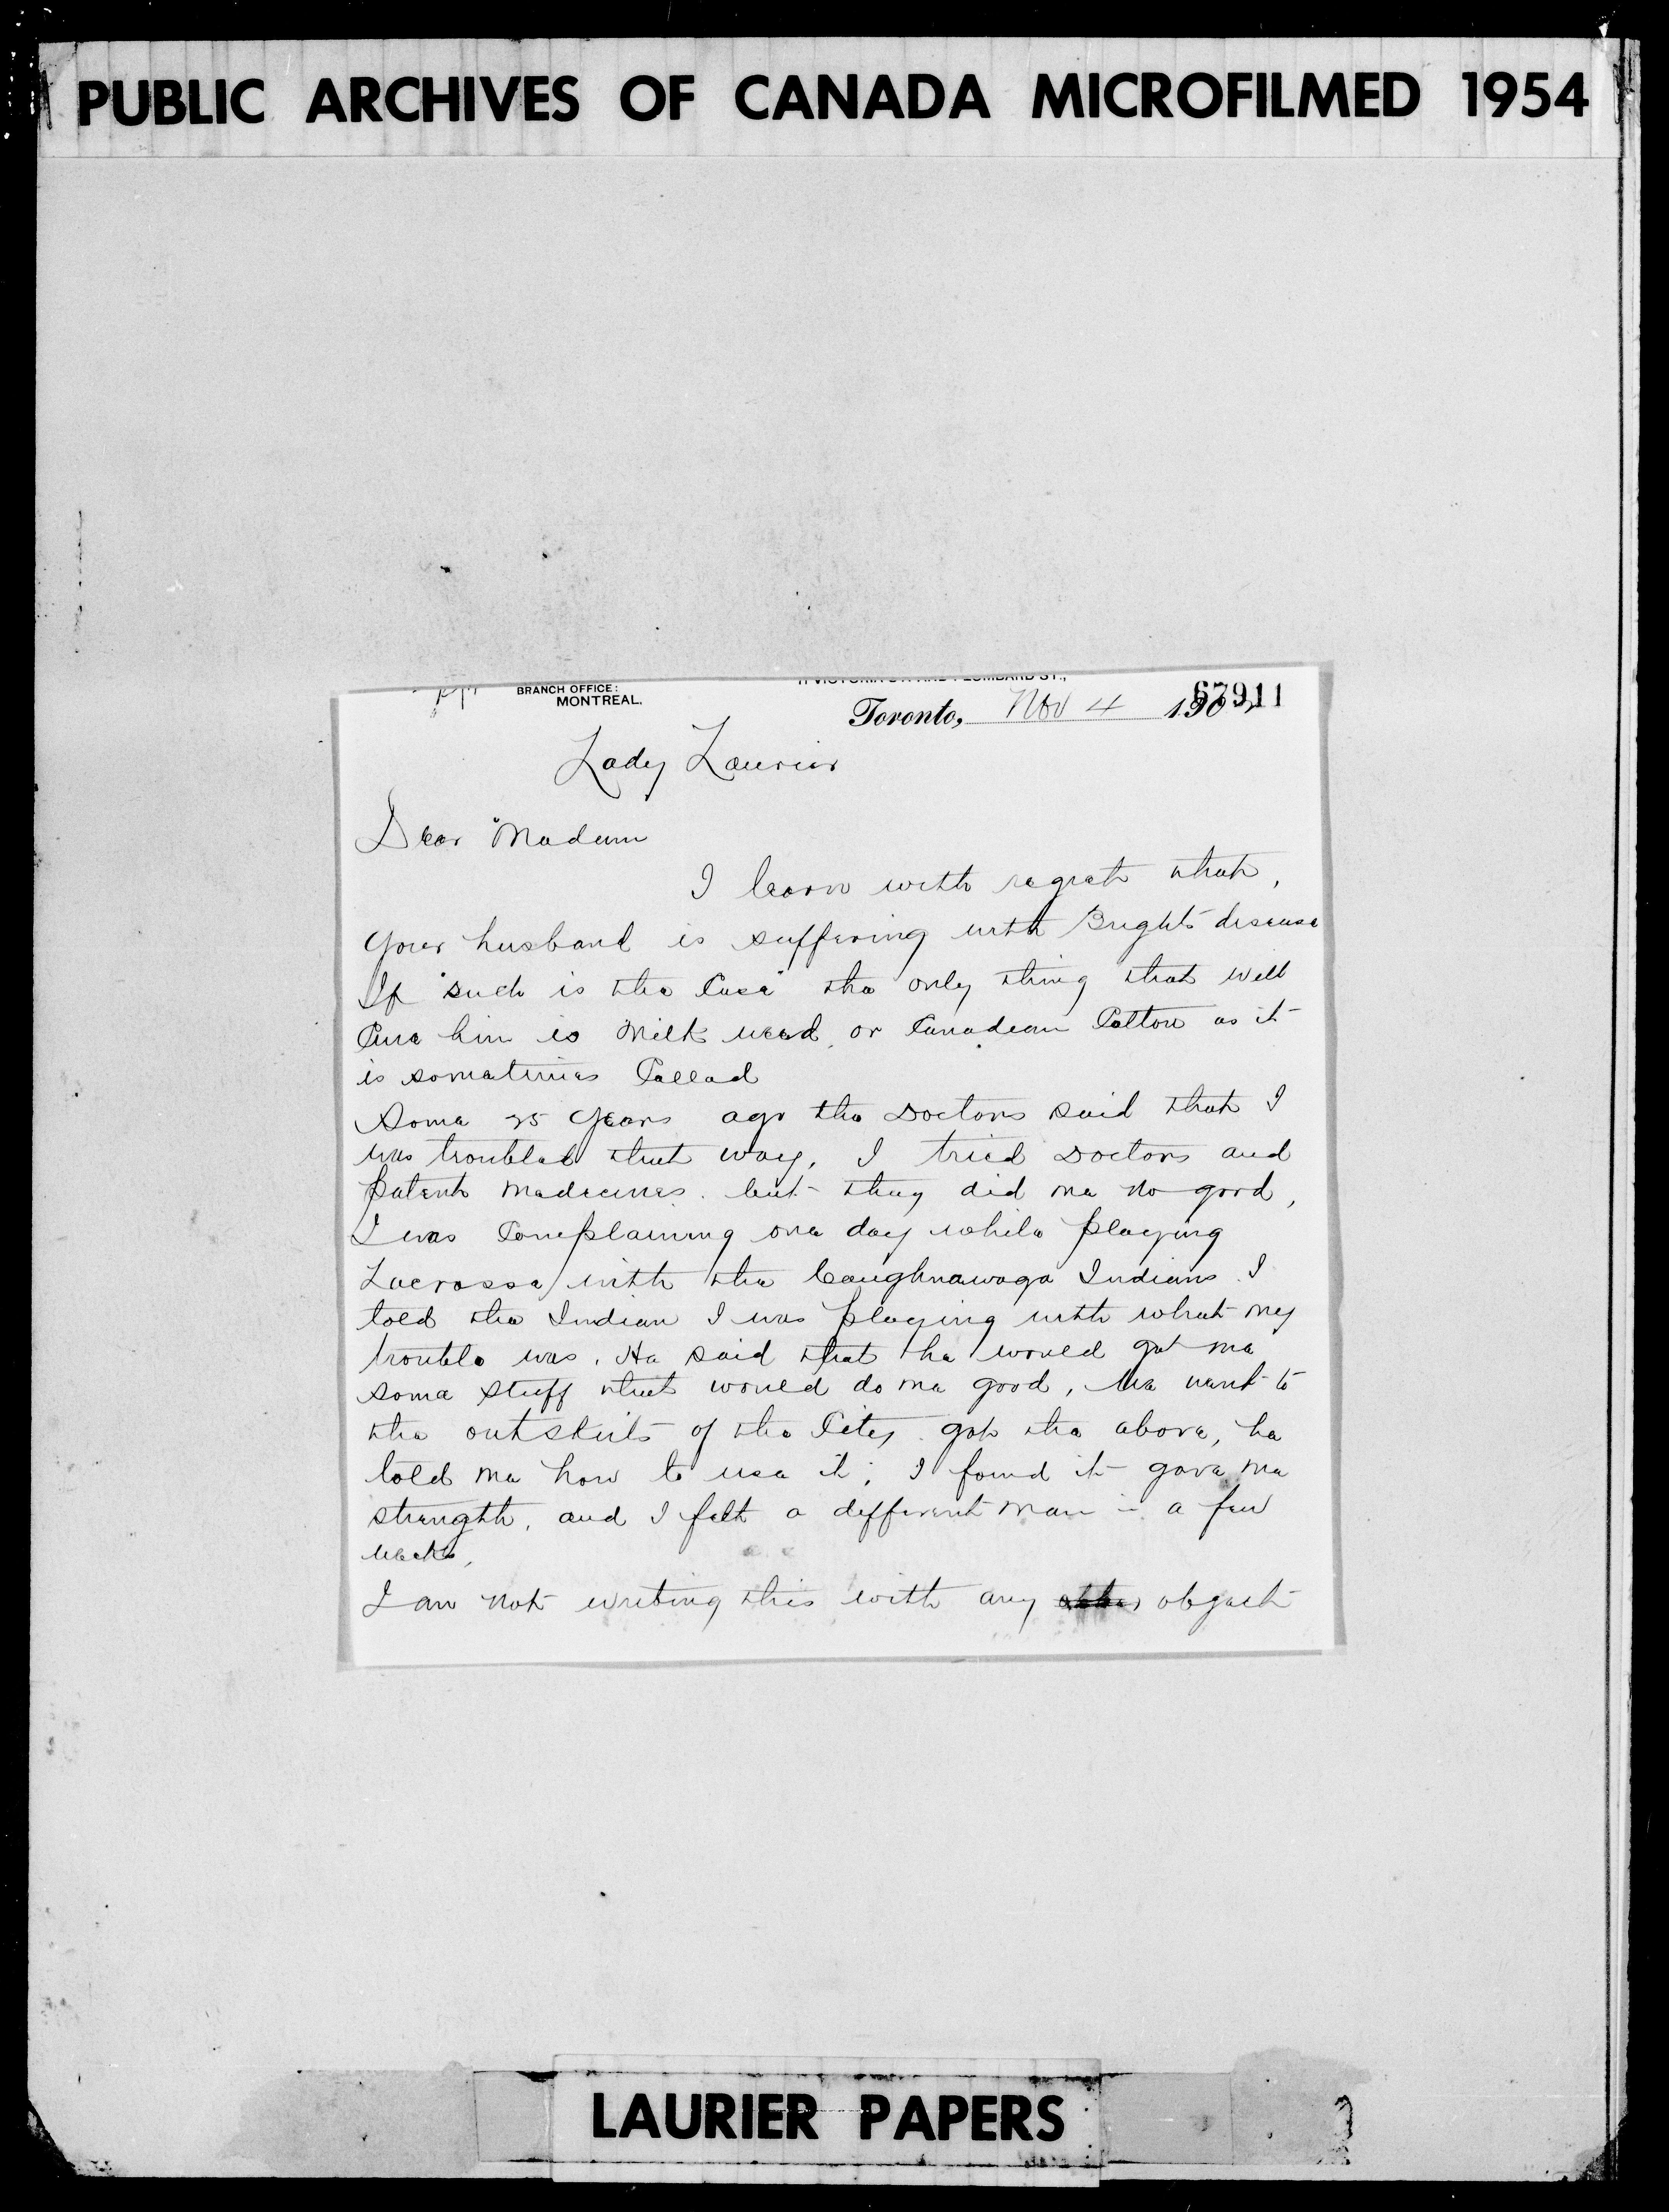 PUBLIC ARCHIVES OF CANADA MICROFILMED 1954
BRANCH OFFICE:
MONTREAL.
Toronto, Nov 4 190
67911
Lady Laurier
Dear Madam
I learn with regret that,
your husband is suffering with Brights disease
If "such is the Case" the only thing that will
Cure him is Milk weed, or Canadian Cotton as it
is sometimes Called
Some 25 years ago the Doctors said that I
was troubled that way, I tried Doctors and
patent medecines. but they did me no good,
I was Complaining one day while playing
Lacrosse with the Caughnawaga Indians. I
told the Indian I was playing with what my
trouble was. He said that he would get me
some stuff that would do me good, he went to
the outskirts of the City got the above, he
told me how to use it; I found it gave me
strength, and I felt a different man in a few
weeks,
I am not writing this with any object
LAURIER PAPERS